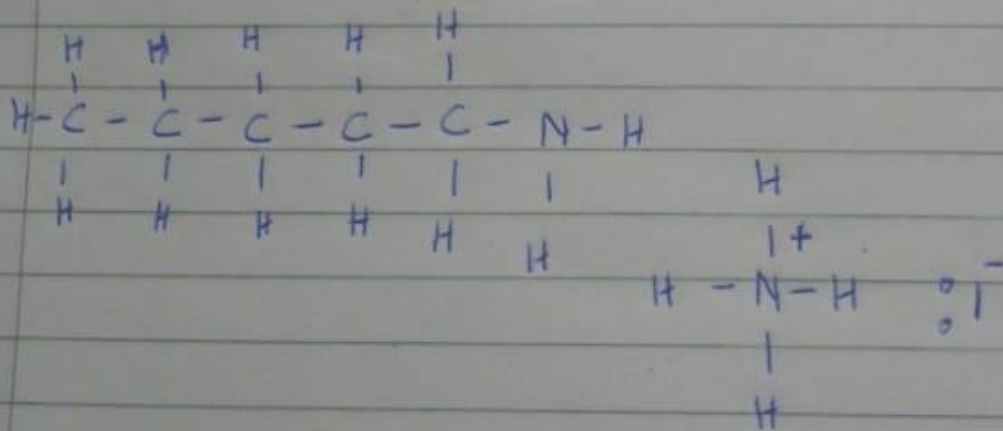 H H H H H
H-C - C - C - C - C - N - H
H H H H H H
H
+
H - N - H : I -
H